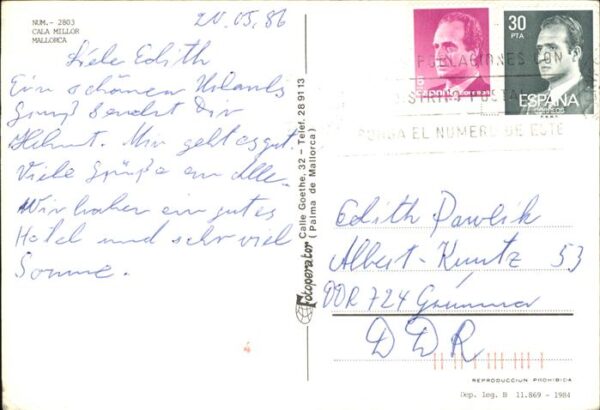 NUM.- 2803
CALA MILLOR
MALLORCA
20.05.86
Liebe Edith
Ein schönen Urlaubs
gruß sendet Dir
Helmut. Mir geht es gut.
Viele Grüße an Alle.
Wir haben ein gutes
Hotel und sehr viel
Sonne.
Fotoperator Calle Goethe, 32 - Telef. 28 91 13
(Palma de Mallorca)
ESPAÑA
correos
30
PTA
ESPAÑA
CORREOS
POBLACIONES CON
PONGA EL NUMERO DE ESTE
Edith Pawlik
Albert-Kuntz 53
DDR 724 Grimma
DDR
4
REPRODUCCION PROHIBIDA
Dep. leg. B 11.869 - 1984